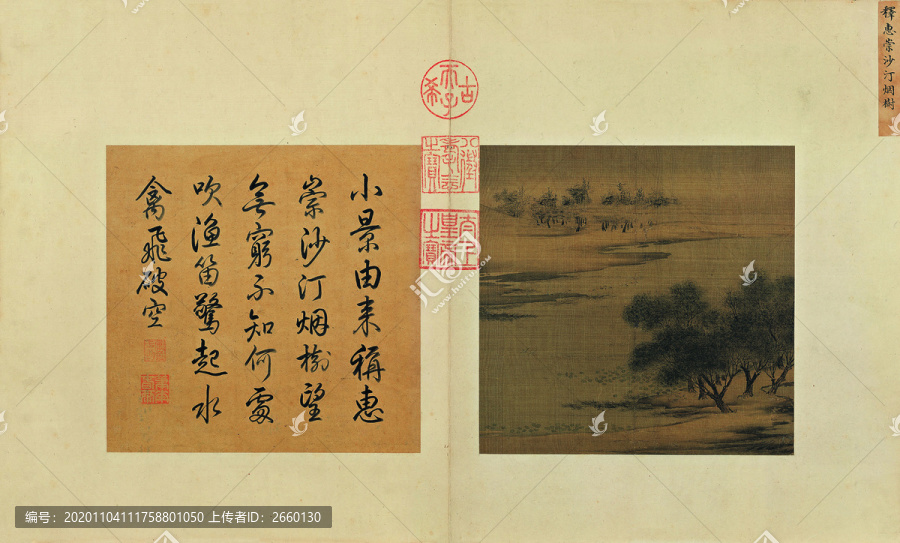 釋惠崇沙汀烟樹
古希天子
八徵耄念之寶
太上皇帝之寶
小景由来稱惠
崇沙汀烟樹望
無窮不知何處
吹漁笛驚起水
禽飛破空
编号：20201104111758801050 上传者ID：2660130